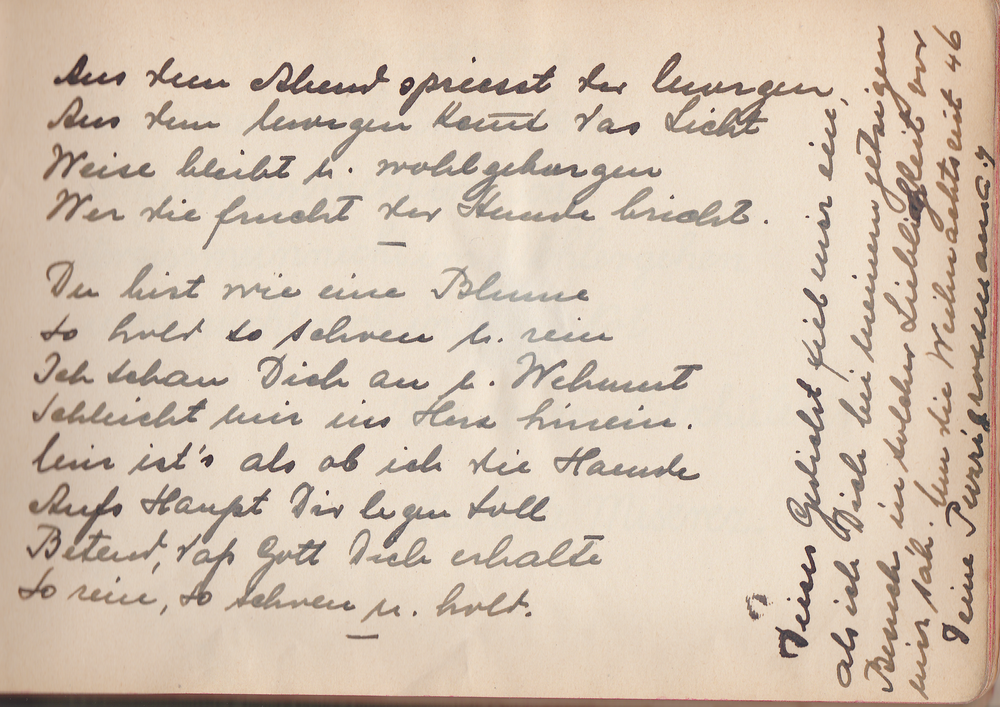 Aus dem Abend spriesst der Morgen,
Aus dem Morgen kommt das Licht
Weise bleibt u. wohlgeborgen
Wer die frucht der Stunde bricht.
Du bist wie eine Blume
So hold so schoen u. rein
Ich schau Dich an u. Wehmut
Schleicht mir ins Herz hinein.
Mir ist's als ob ich die Haende
Aufs Haupt Dir legen soll
Betend, daß Gott Dich erhalte
So rein, so schoen u. hold.
Dieses Gedicht fiel mir ein,
als ich Dich bei meinem gestrigen
Besuch in solcher Lieblichkeit vor
mir sah. Um die Weihnachtszeit 46
Deine